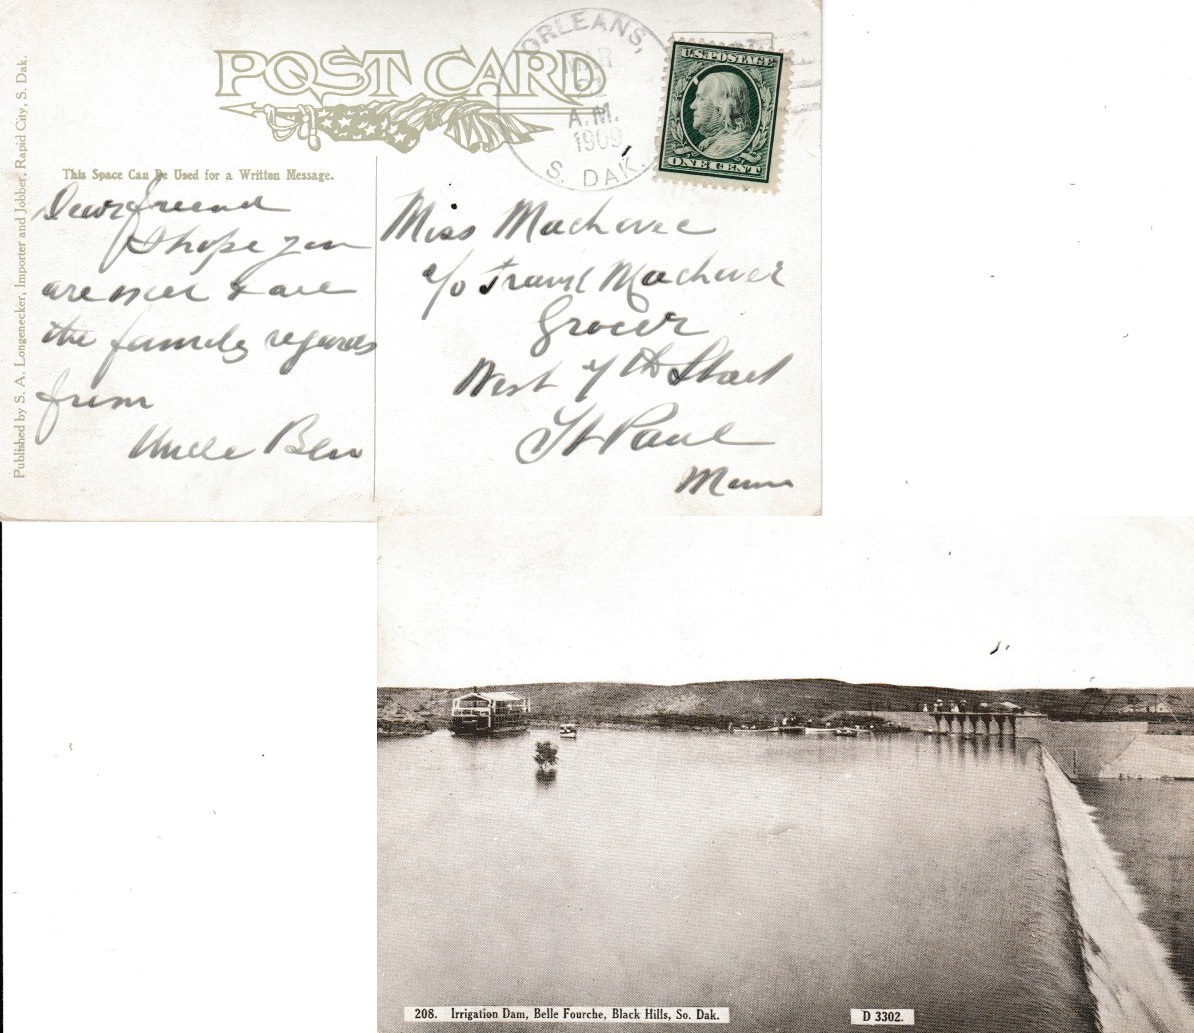 POST CARD
ORLEANS,
MAR
22
A.M.
1909
S. DAK.
U.S. POSTAGE
ONE CENT
Published by S. A. Longenecker, Importer and Jobber, Rapid City, S. Dak.
This Space Can Be Used for a Written Message.
Dear friend
I hope you
are well & all
the family regards
from
Uncle Ben
Miss Machovec
c/o Frank Machovec
Grocer
West 7th Street
St Paul
Minn
208. Irrigation Dam, Belle Fourche, Black Hills, So. Dak.
D 3302.